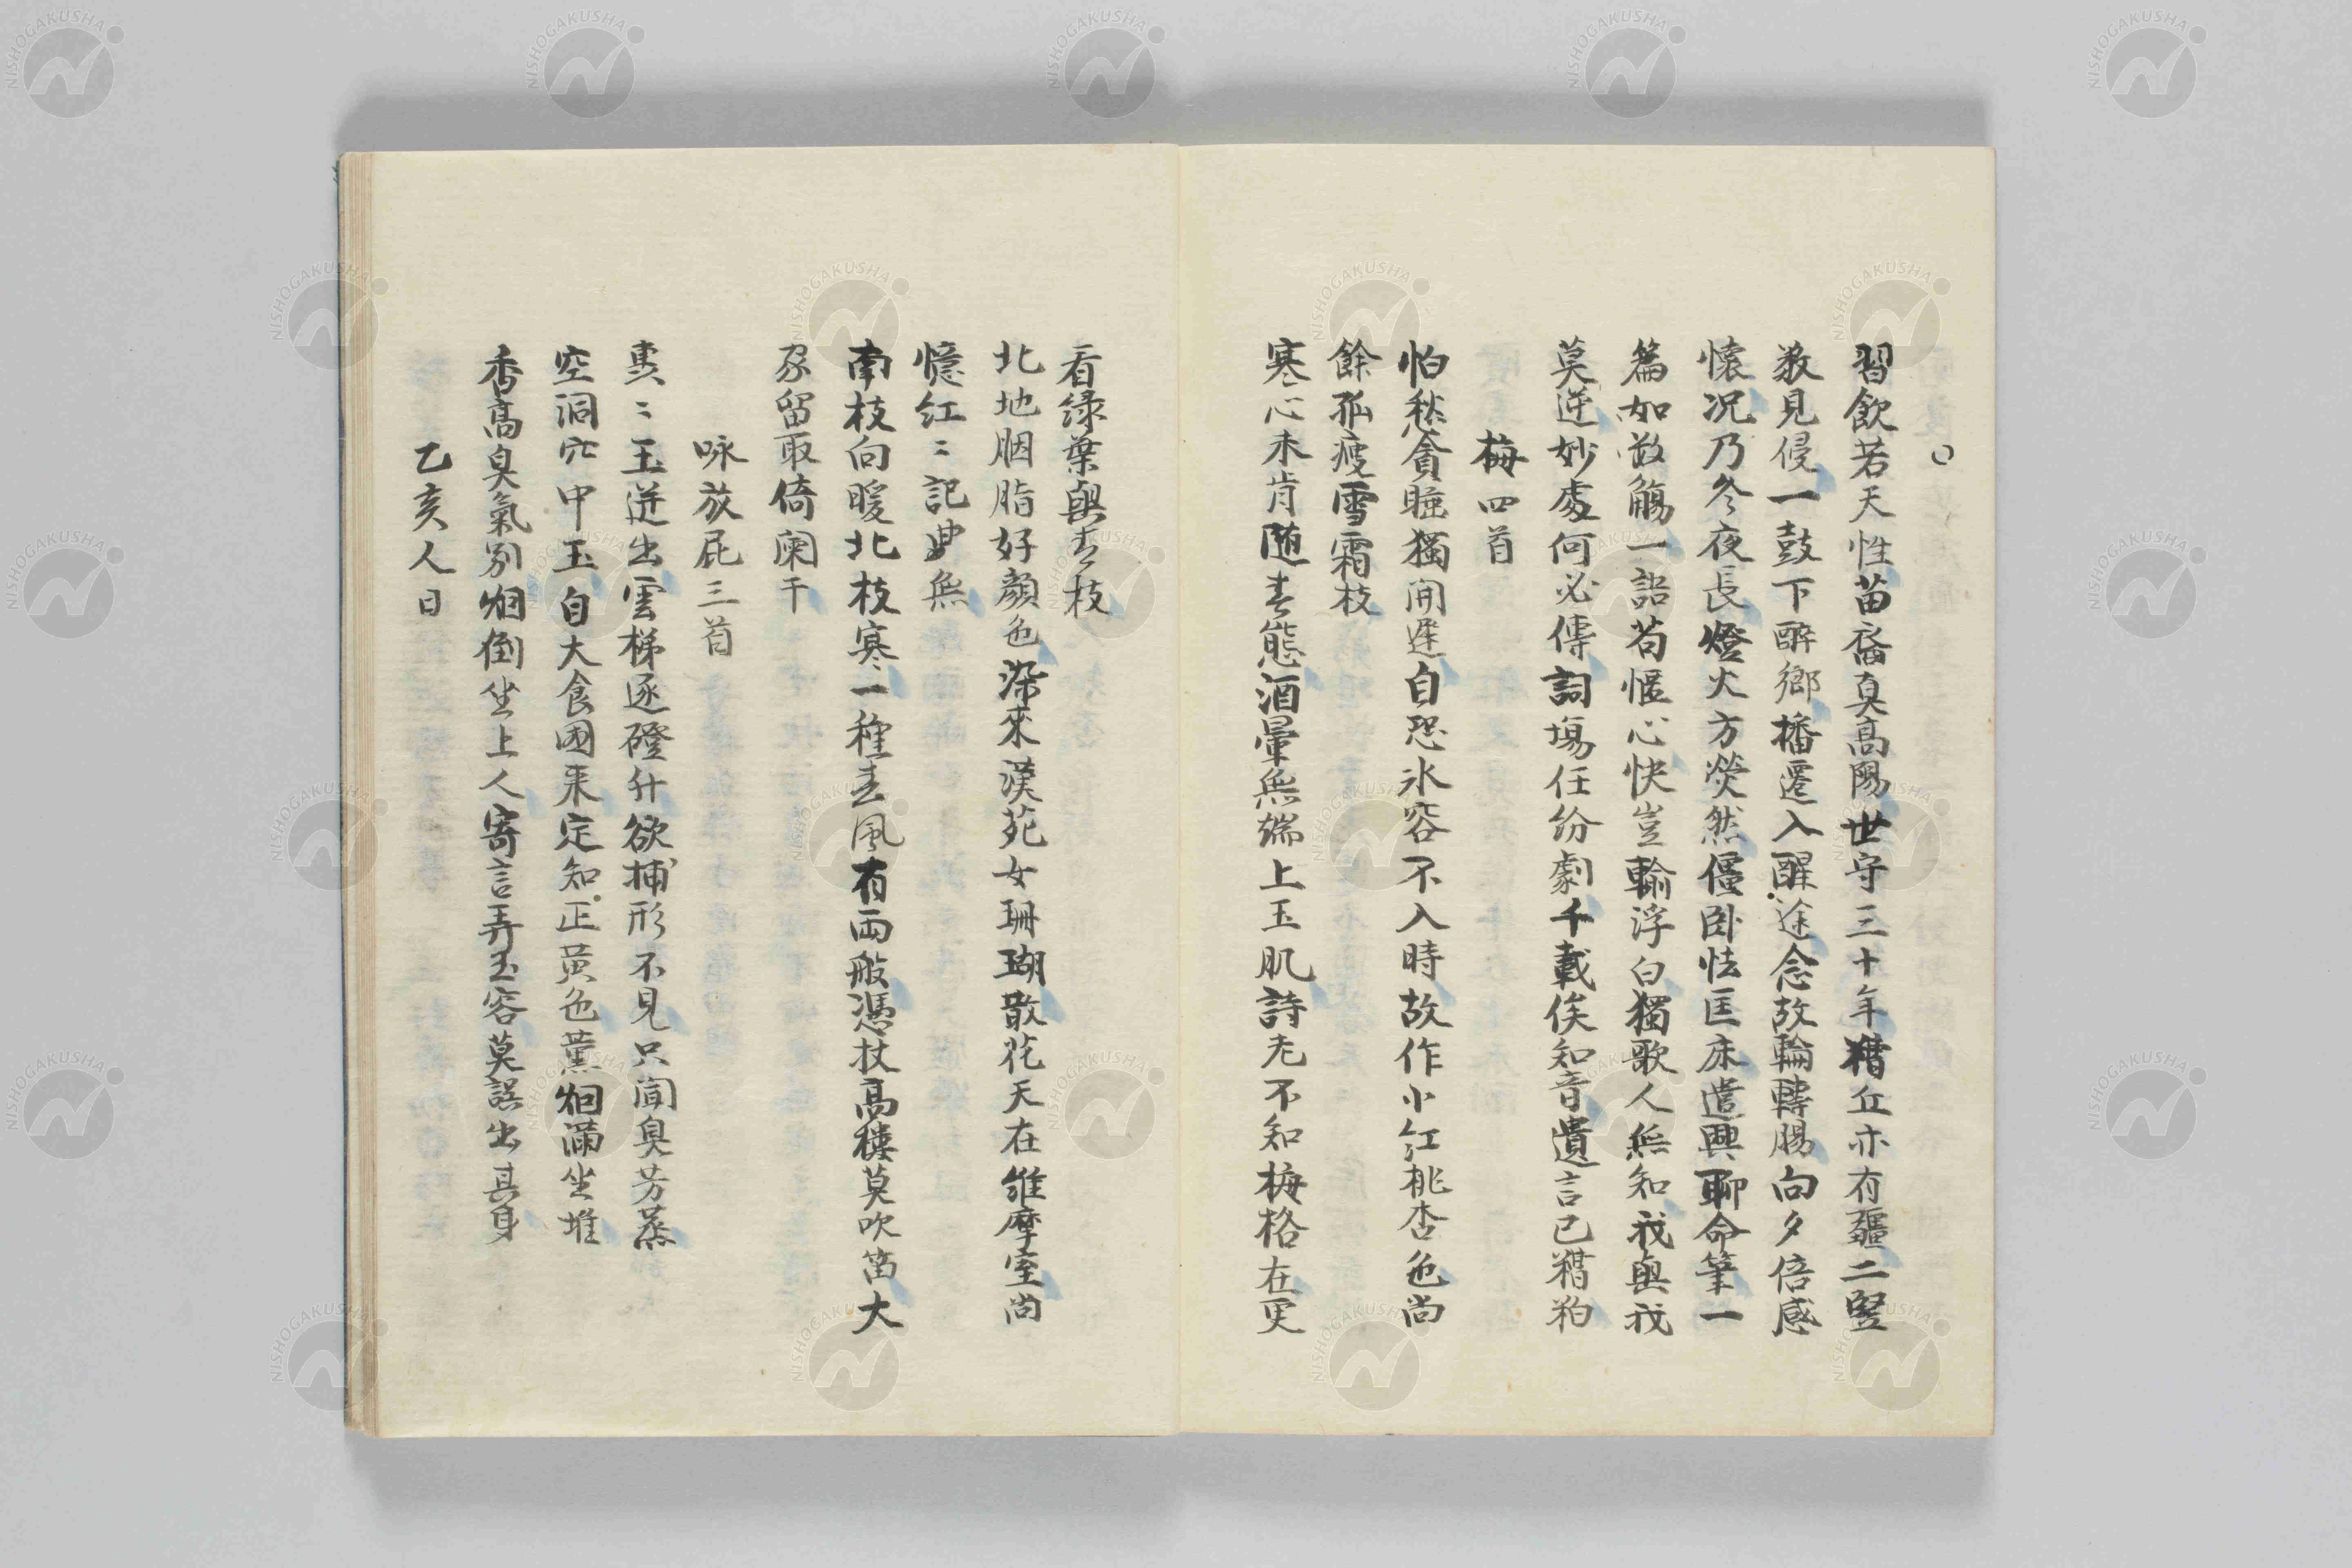 ○
習飲若天性苗裔真高陽世守三十年糟丘亦有疆二竪
敎見侵一鼓下醉鄉播遷入醒途念故輪轉腸向夕倍感
懷况乃冬夜長燈火方熒然僵卧怯匡床遣興聊命筆一
篇如敵觴一詔苟愜心快豈輸浮白獨歌人無知我與我
莫逆妙處何必傳詞塲任紛劇千載俟知音遺言已糟粕
梅四首
怕愁貪睡獨開遲自恐氷容不入時故作小紅桃杏色尚
餘孤瘦雪霜枝
寒心未肯随春態酒暈無端上玉肌詩老不知梅格在更
看綠葉與青枝
北地胭脂好顏色染來漢苑女珊瑚散花天在維摩室尚
憶紅〻記典無
南枝向暖北枝寒一種春風有両般憑杖高樓莫吹笛大
家留取倚闌干
咏放屁三首
〻玉迸出雲梯逐磴升欲捕形不見只聞臭芳蒸
空洞穴中玉自大食国来定知正黄色薫烟滿坐堆
香高臭氣別烟倒坐上人寄言弄玉容莫誤出其身
乙亥人日
NISHOGAKUSHA